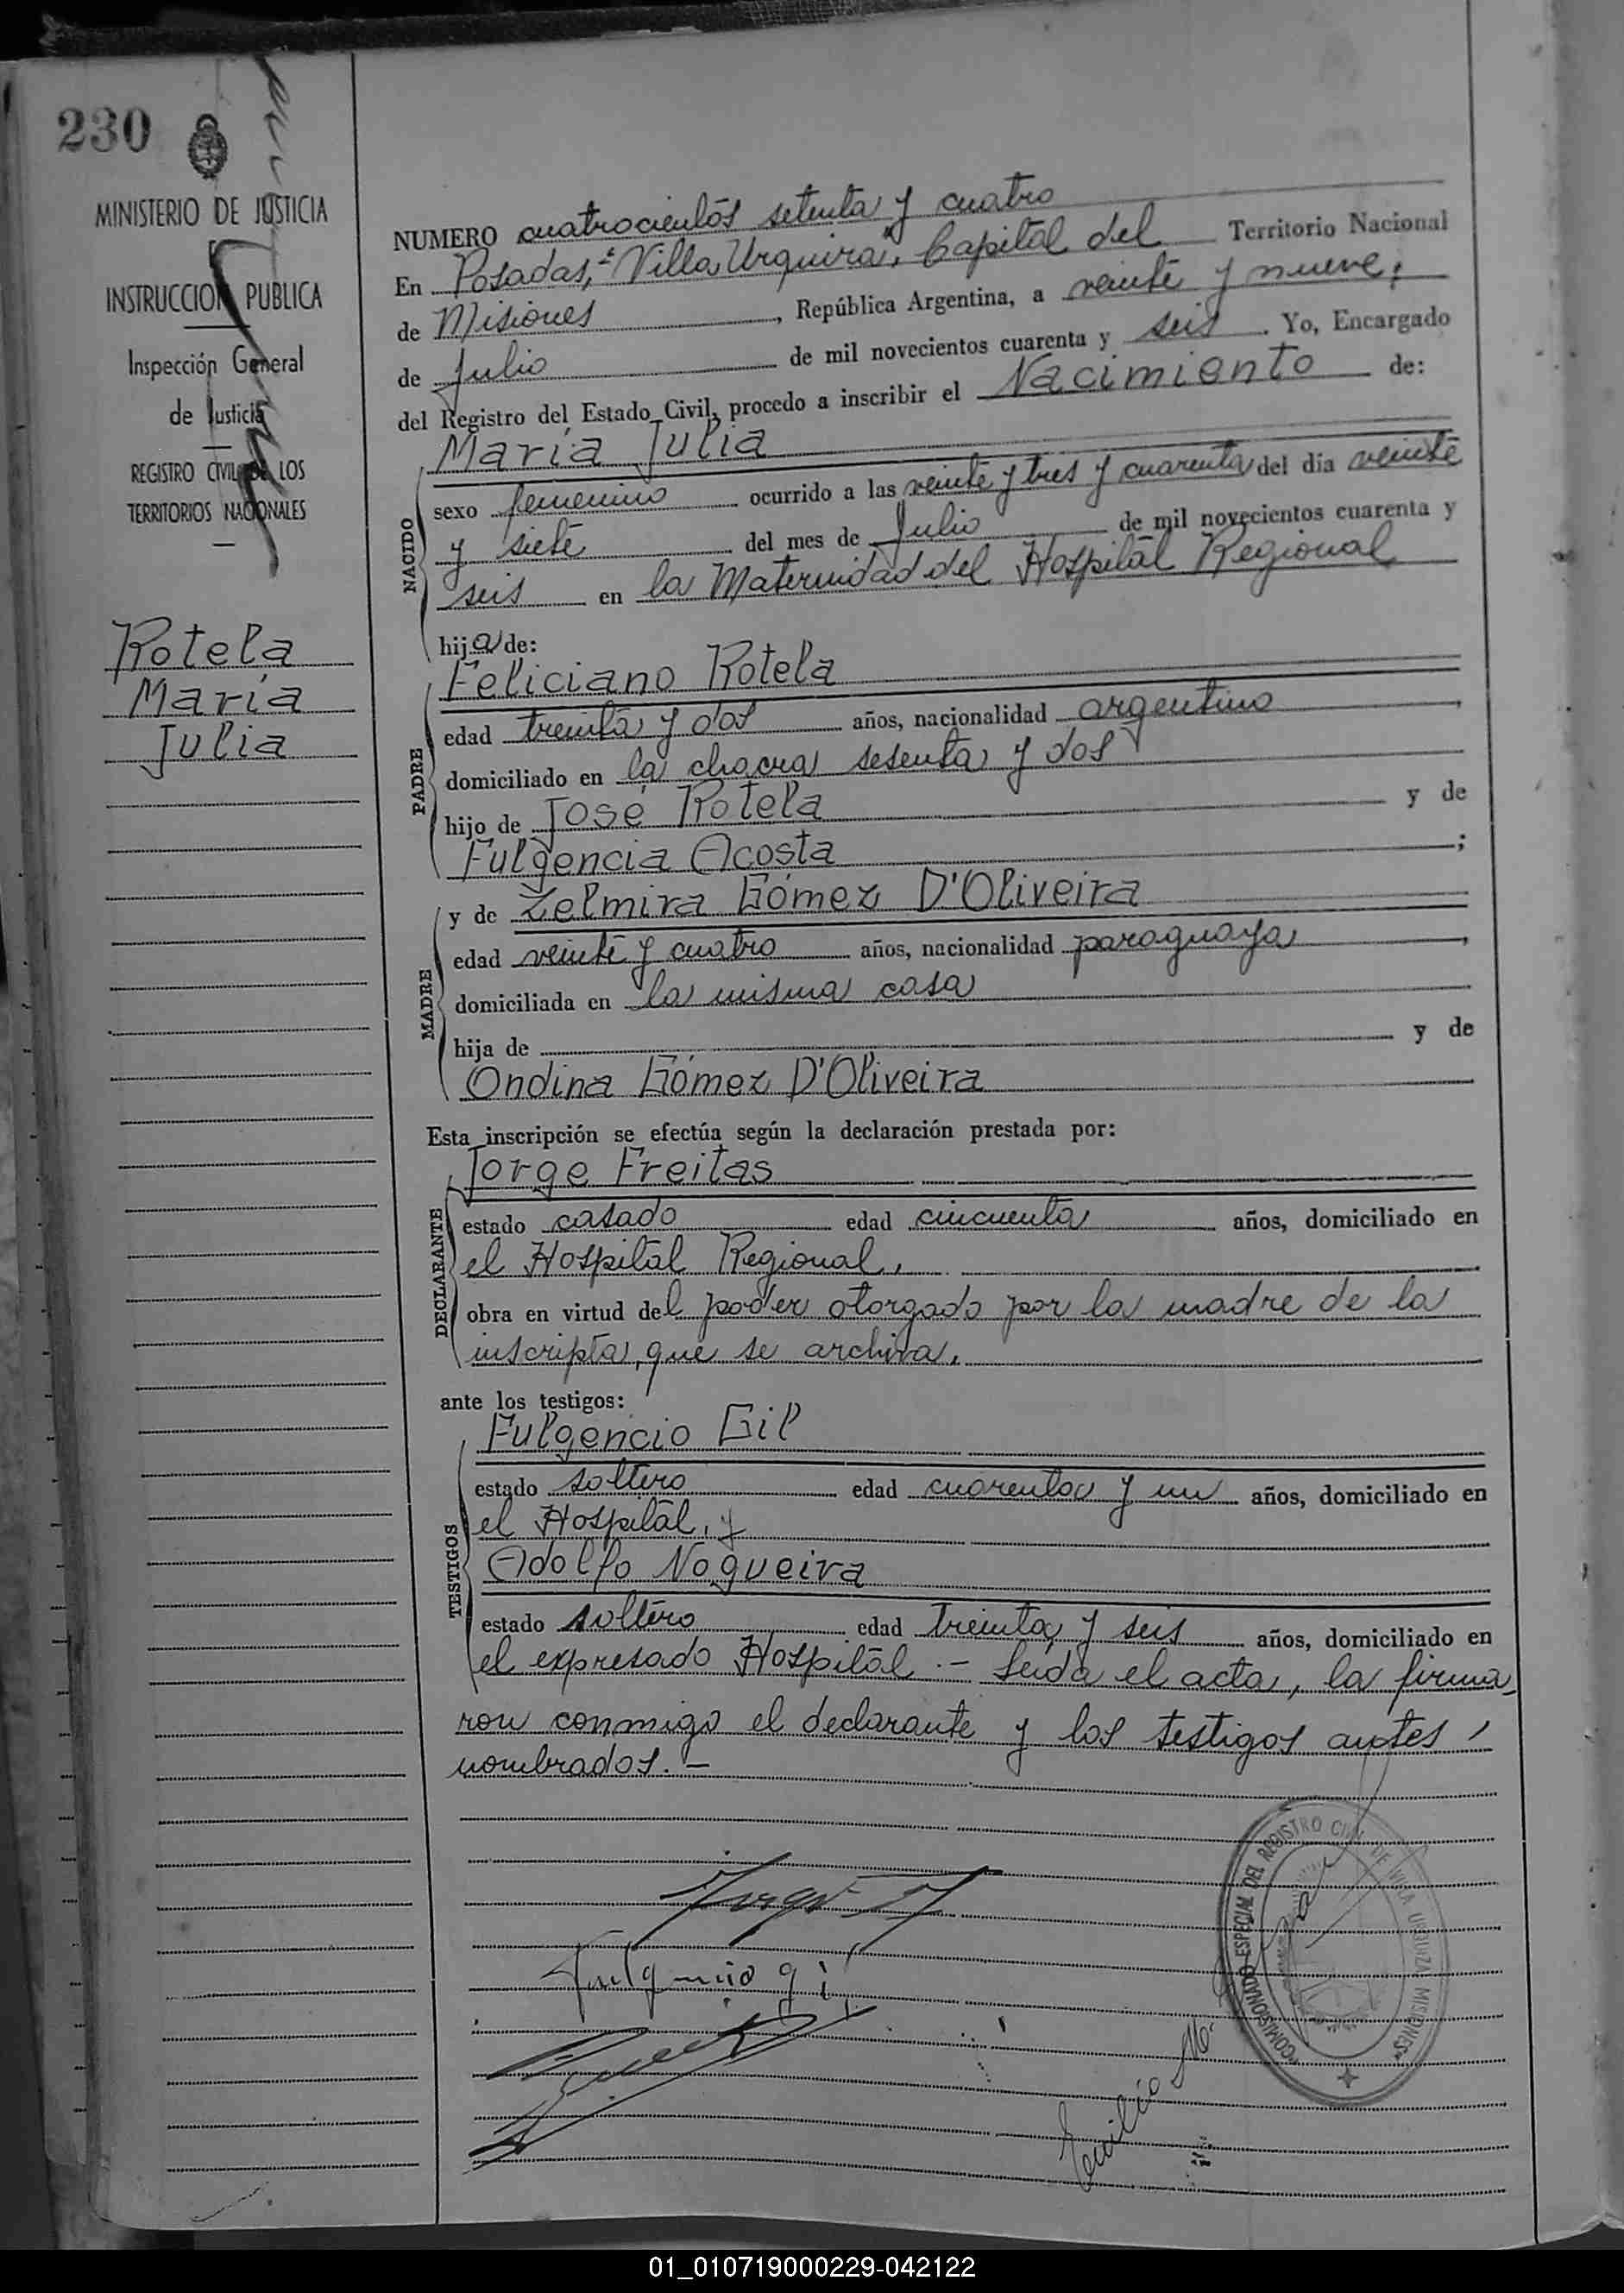 230
MINISTERIO DE JUSTICIA
INSTRUCCION PUBLICA
Inspección General
de Justicia
REGISTRO CIVIL DE LOS
TERRITORIOS NACIONALES
Rotela
María
Julia
NUMERO cuatrocientos setenta y cuatro
En Posadas, "Villa Urquiza", Capital del Territorio Nacional
de Misiones, República Argentina, a veinte y nueve,
de Julio de mil novecientos cuarenta y seis. Yo, Encargado
del Registro del Estado Civil, procedo a inscribir el Nacimiento de:
NACIDO
María Julia
sexo femenino ocurrido a las veinte y tres y cuarenta del día veinte
y siete del mes de Julio de mil novecientos cuarenta y
seis en la Maternidad del Hospital Regional
hija de:
PADRE
Feliciano Rotela
edad treinta y dos años, nacionalidad argentino,
domiciliado en la chacra sesenta y dos
hijo de José Rotela y de
Fulgencia Acosta;
MADRE
y de Zelmira Gómez D'Oliveira
edad veinte y cuatro años, nacionalidad paraguaya,
domiciliada en la misma casa
hija de y de
Ondina Gómez D'Oliveira
Esta inscripción se efectúa según la declaración prestada por:
DECLARANTE
Jorge Freitas
estado casado edad cincuenta años, domiciliado en
el Hospital Regional,
obra en virtud del poder otorgado por la madre de la
inscripta, que se archiva.
ante los testigos:
TESTIGOS
Fulgencio Gil
estado soltero edad cuarenta y un años, domiciliado en
el Hospital, y
Adolfo Nogueira
estado soltero edad treinta y seis años, domiciliado en
el expresado Hospital.- Leída el acta, la firma
ron conmigo el declarante y los testigos antes
nombrados.-
Fulgencio Gil
Emilio M.
"COMISIONADO ESPECIAL DEL REGISTRO CIVIL DE VILLA URQUIZA MISIONES"
01_010719000229-042122